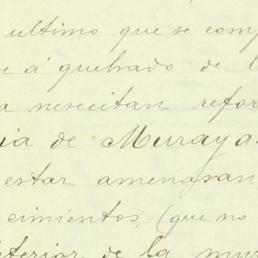 ultimo que se comp
e á quebrado de l
a nescitan refor
ia de Muraya
estar amenasan
cimientos, (que no
terior de la mur